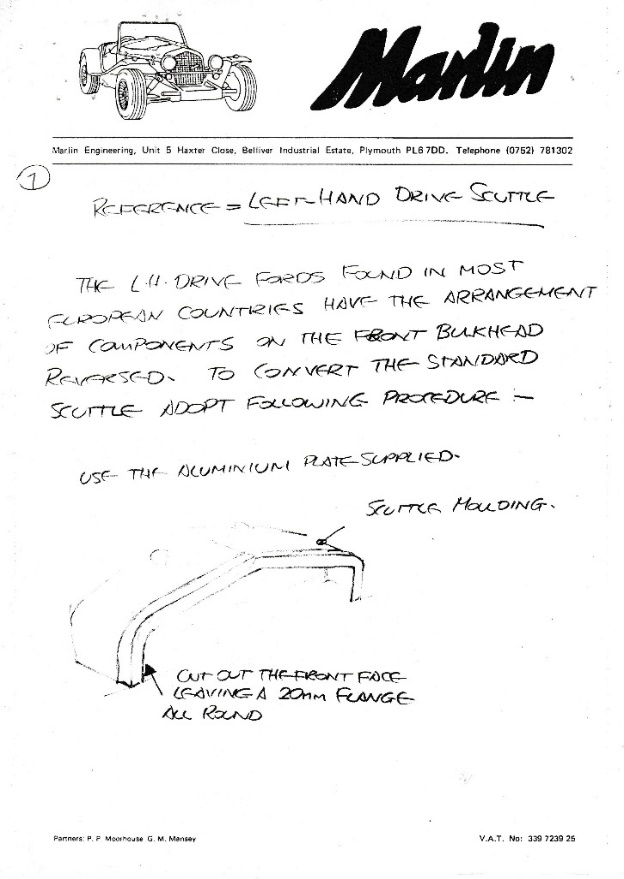 Marlin
Marlin Engineering, Unit 5 Haxter Close, Belliver Industrial Estate, Plymouth PL6 7DD. Telephone (0752) 781302
1
REFERENCE = LEFT-HAND DRIVE SCUTTLE
THE L.H. DRIVE FORDS FOUND IN MOST
EUROPEAN COUNTRIES HAVE THE ARRANGEMENT
OF COMPONENTS ON THE FRONT BULKHEAD
REVERSED. TO CONVERT THE STANDARD
SCUTTLE ADOPT FOLLOWING PROCEDURE :-
USE THE ALUMINIUM PLATE SUPPLIED.
SCUTTLE MOULDING.
CUT OUT THE FRONT FACE
LEAVING A 20mm FLANGE
ALL ROUND
Partners: P. P. Moorhouse G. M. Mensey
V.A.T. No: 339 7239 25